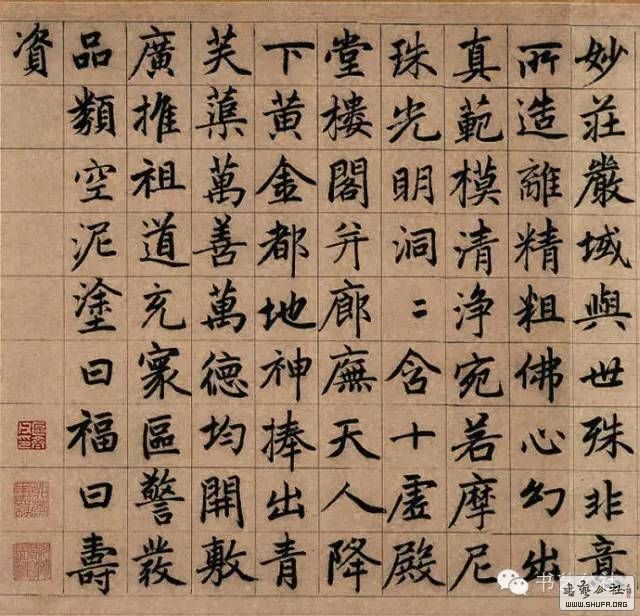 妙莊嚴域與世殊非意
所造離精粗佛心幻出
真範模清淨宛若摩尼
珠光明洞〻含十虛殿
堂樓閣并廊廡天人降
下黃金都地神捧出青
芙蕖萬善萬德均開敷
廣推祖道充寰區警發
品類空泥塗曰福曰壽
資
书艺公社
書藝公社
WWW.SHUFA.ORG